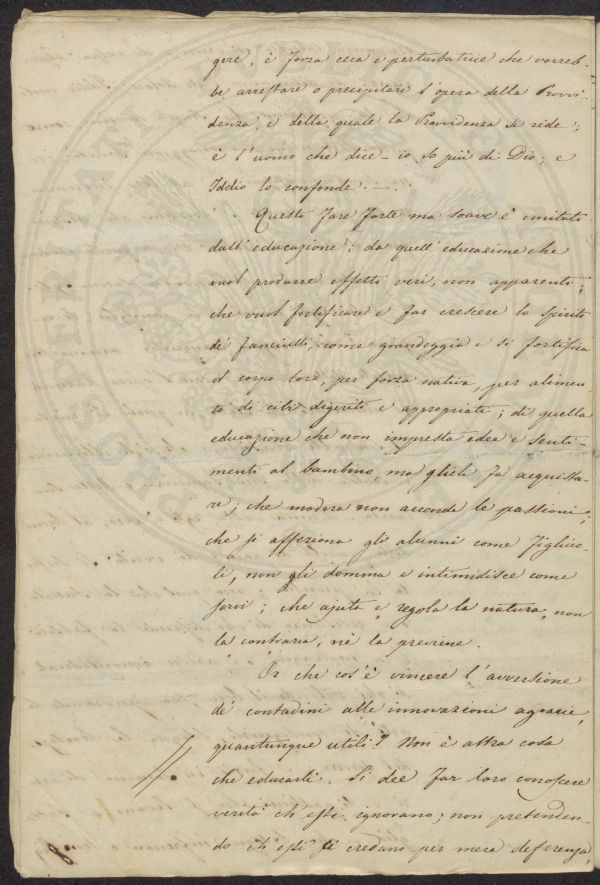 gere, è forza cieca e perturbatrice che vorreb-
be arrestare o precipitare l'opera della Provvi-
denza, e della quale la Provvidenza si ride;
è l'uomo che dice — io so più di Dio; e
Iddio lo confonde. —.
Questo fare forte ma soave è imitato
dall'educazione; da quell'educazione che
vuol produrre effetti veri, non apparenti;
che vuol fortificare e far crescere lo spirito
de' fanciulli, come grandeggia e si fortifica
il corpo loro, per forza nativa, per alimen-
to di cibi digeriti e appropriati; di quella
educazione che non impresta idee e senti-
menti al bambino ma glieli fa acquista-
re; che modera non accende le passioni;
che si affeziona gli alunni come figliuo-
li, non gli domina e intimidisce come
servi; che ajuta e regola la natura, non
la contraria, nè la previene.
Or che cos'è vincere l'avversione
de' contadini alle innovazioni agrarie,
quantunque utili? Non è altra cosa
che educarli. Si dee far loro conoscere
verità ch'essi ignorano; non pretenden-
do ch'essi si credano per mera deferenza,
PRO SPERITATI